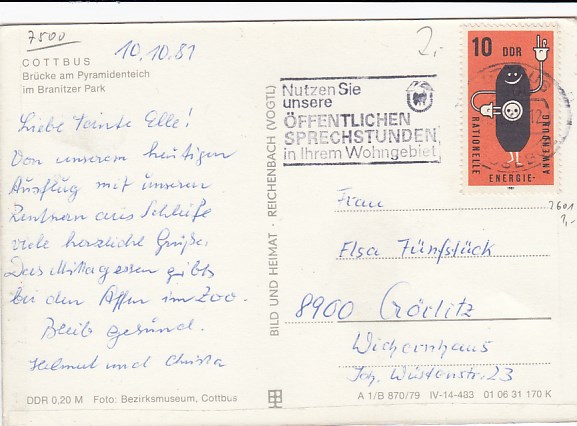 7500
COTTBUS
Brücke am Pyramidenteich
im Branitzer Park
10.10.81
2,-
Liebe Tante Elle!
Von unserem heutigen
Ausflug mit unseren
Rentnern aus Schleife
viele herzliche Grüße.
Das Mittagessen gibts
bei den Affen im Zoo.
Bleib gesund.
Helmut und Christa
DDR 0,20 M Foto: Bezirksmuseum, Cottbus
BILD UND HEIMAT · REICHENBACH (VOGTL)
Nutzen Sie
unsere
ÖFFENTLICHEN
SPRECHSTUNDEN
in Ihrem Wohngebiet
10 DDR
RATIONELLE
ENERGIE-
ANWENDUNG
1981
2601
Frau
Elsa Fünfstück
8900 Görlitz
Wichernhaus
Joh. Wüstenstr. 23
A 1/B 870/79 IV-14-483 01 06 31 170 K